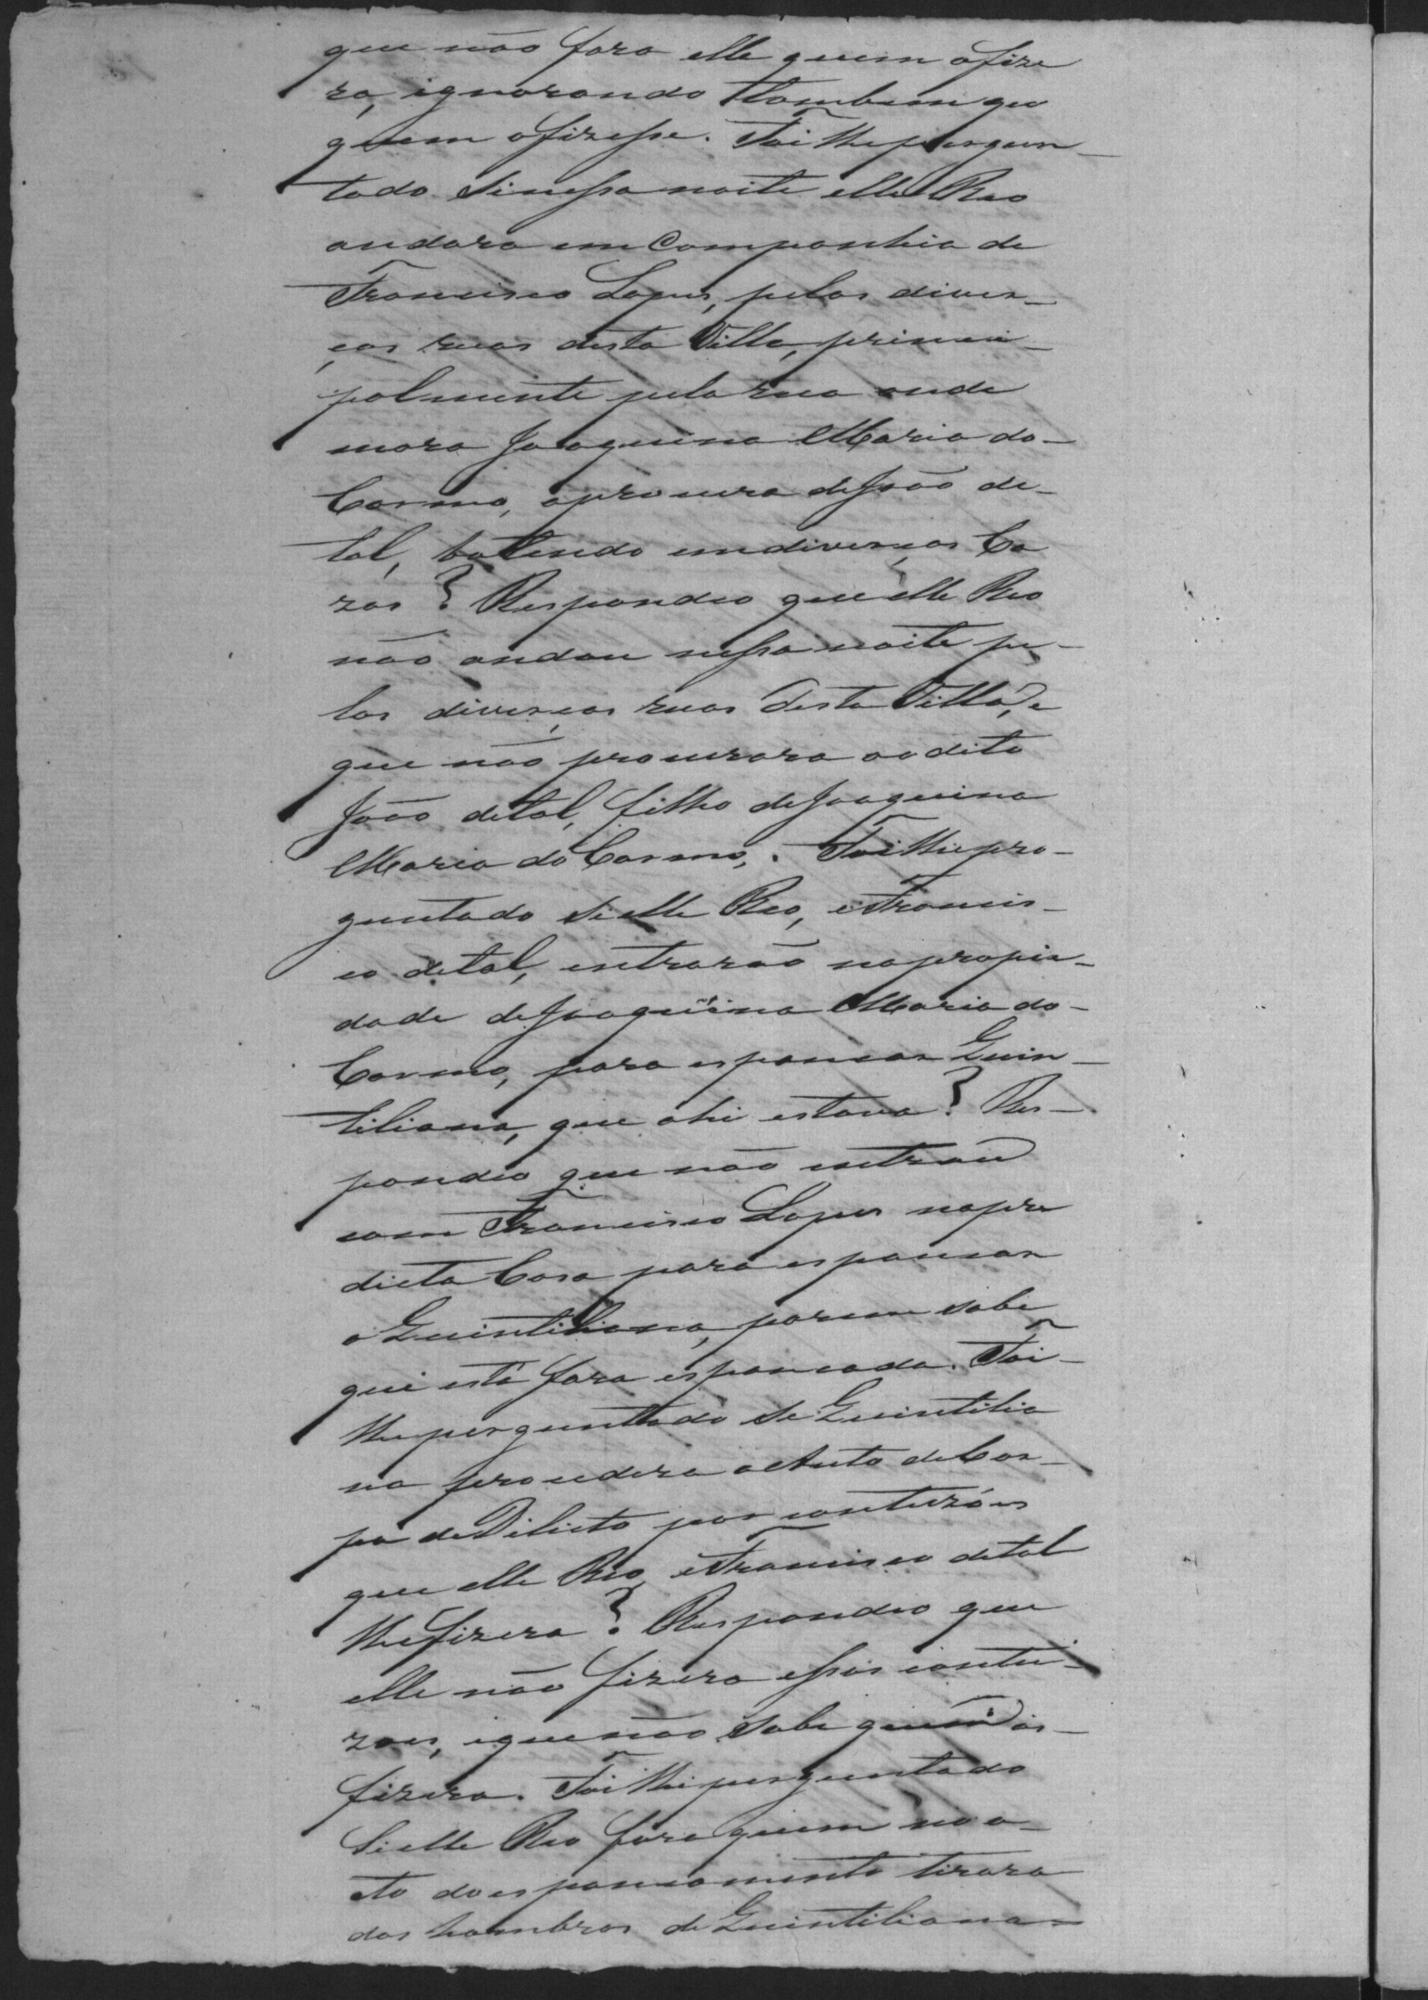 que não fora elle quem o fize
ra, ignorando tambem por
quem o fizesse. Foi lhe pergun-
tado si nessa noite elle Reo
andara em Companhia de
Francisco Lopes, pelas diver-
ças ruas desta Villa, princi-
palmente pela rua onde
mora Joaquina Maria do-
Carmo, a procura de João de-
tal, batendo em diverças Ca
zas? Respondeo que elle Reo
não andou nessa noite pe-
las diverças ruas desta Villa, e
que não procurara ao dito
João de tal, filho de Joaquina
Maria do Carmo,. Foi lhe pre-
guntado si elle Reo, e Francis-
co de tal, entrarão na proprie-
dade de Joaquina Maria do-
Carmo, para espancar Quin-
tiliana, que ahi estava? Res-
pondeo que não entrou
com Francisco Lopes na pre
dicta Casa para espancar
a Quintiliana, porem sabe
que esta fora espancada. Foi-
lhe perguntado se Quintilia
na procedera a Auto de Cor-
po de Delicto por contuzões
que elle Reo, e Francisco de tal
lhe fizera? Respondeo que
elle não fizera essas contu-
zoes, e que não sabe quem as-
fizera. Foi lhe perguntado
Si elle Reo fora quem no a-
cto do espancamento tirara
dos hombros de Quintiliana